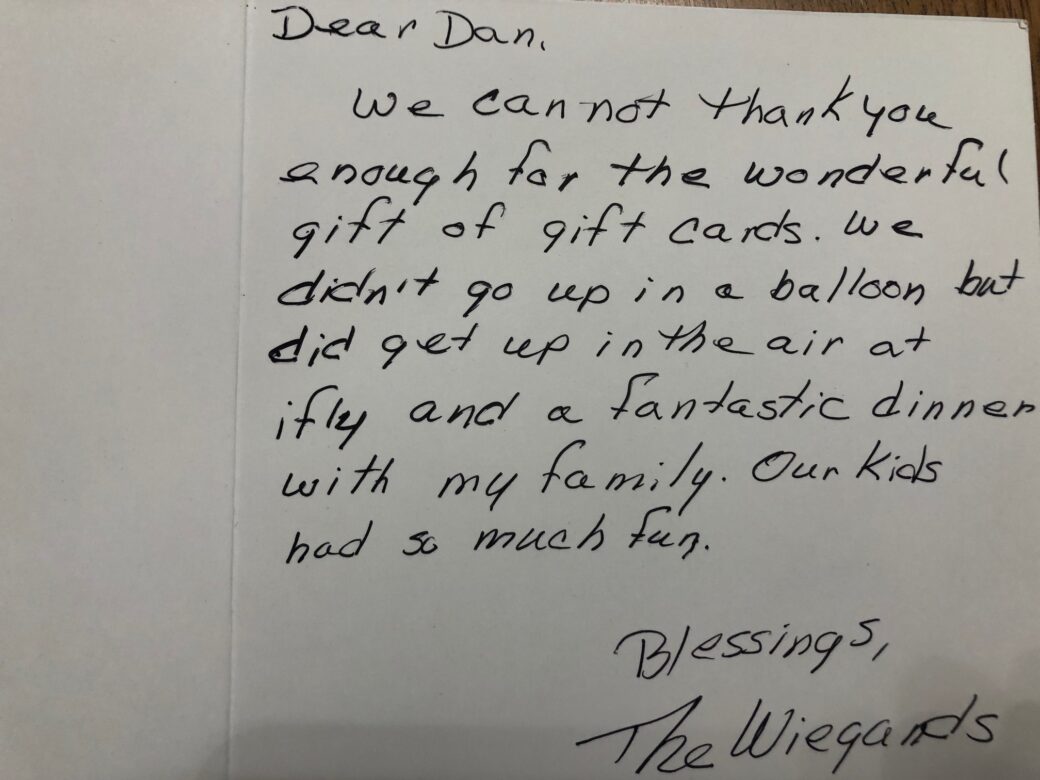 Dear Dan,
We can not thank you
enough for the wonderful
gift of gift cards. We
didn't go up in a balloon but
did get up in the air at
ifly and a fantastic dinner
with my family. Our kids
had so much fun.
Blessings,
The Wiegands